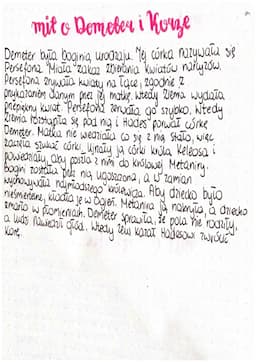 mit o Demeter i Korze
Demeter była boginią urodzaju. Jej córka nazywała się
Persefona. Miała zakaz zbierania kwiatów narcyzów.
Persefona zrywała kwiaty na łące, zgodnie z
przykazaniem danym przez jej matkę, wtedy ziemia wydała
przepiękny kwiat. Persefona zerwała go szybko. Wtedy
ziemia rozstąpiła się pod nią i Hades porwał córkę
Demeter. Matka nie wiedziała co się z nią stało, więc
zaczęła szukać córki. Ujrzały ją córki króla Keleosa i
powiedziały, aby poszła z nimi do królowej Metaniry.
bogini została przez nią ugoszczona, a w zamian
wychowywała najmłodszego królewicza. Aby dziecko było
nieśmiertelne, kładła je w ogień. Metanira ją nakryła, a dziecko
zmarło w płomieniach. Demeter sprawiła, że pola nie rodziły,
a ludzi nawiedził głód. Wtedy Zeus kazał Hadesowi zwrócić
Korę.